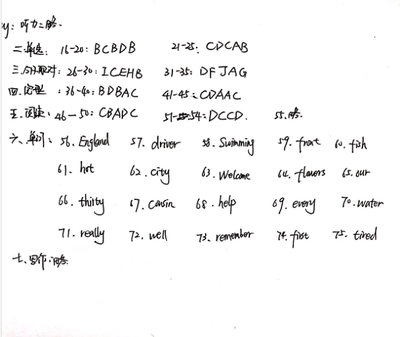 听力:略.
二.单选: 16-20: BCBDB 21-25: CDCAB
三. 26-30: ICEHB 31-35: DFJAG
四. 36-40: BDBAC 41-45: CDAAC
五. 阅读: 46-50: CBADC 51-54: DCCD. 55.略.
六. 单词: 56. England 57. driver 58. Swimming 59. front 60. fish
61. hot 62. city 63. Welcome 64. flowers 65. our
66. thirty 67. cousin 68. help 69. every 70. water
71. really 72. well 73. remember 74. first 75. tired
七. 写作.略